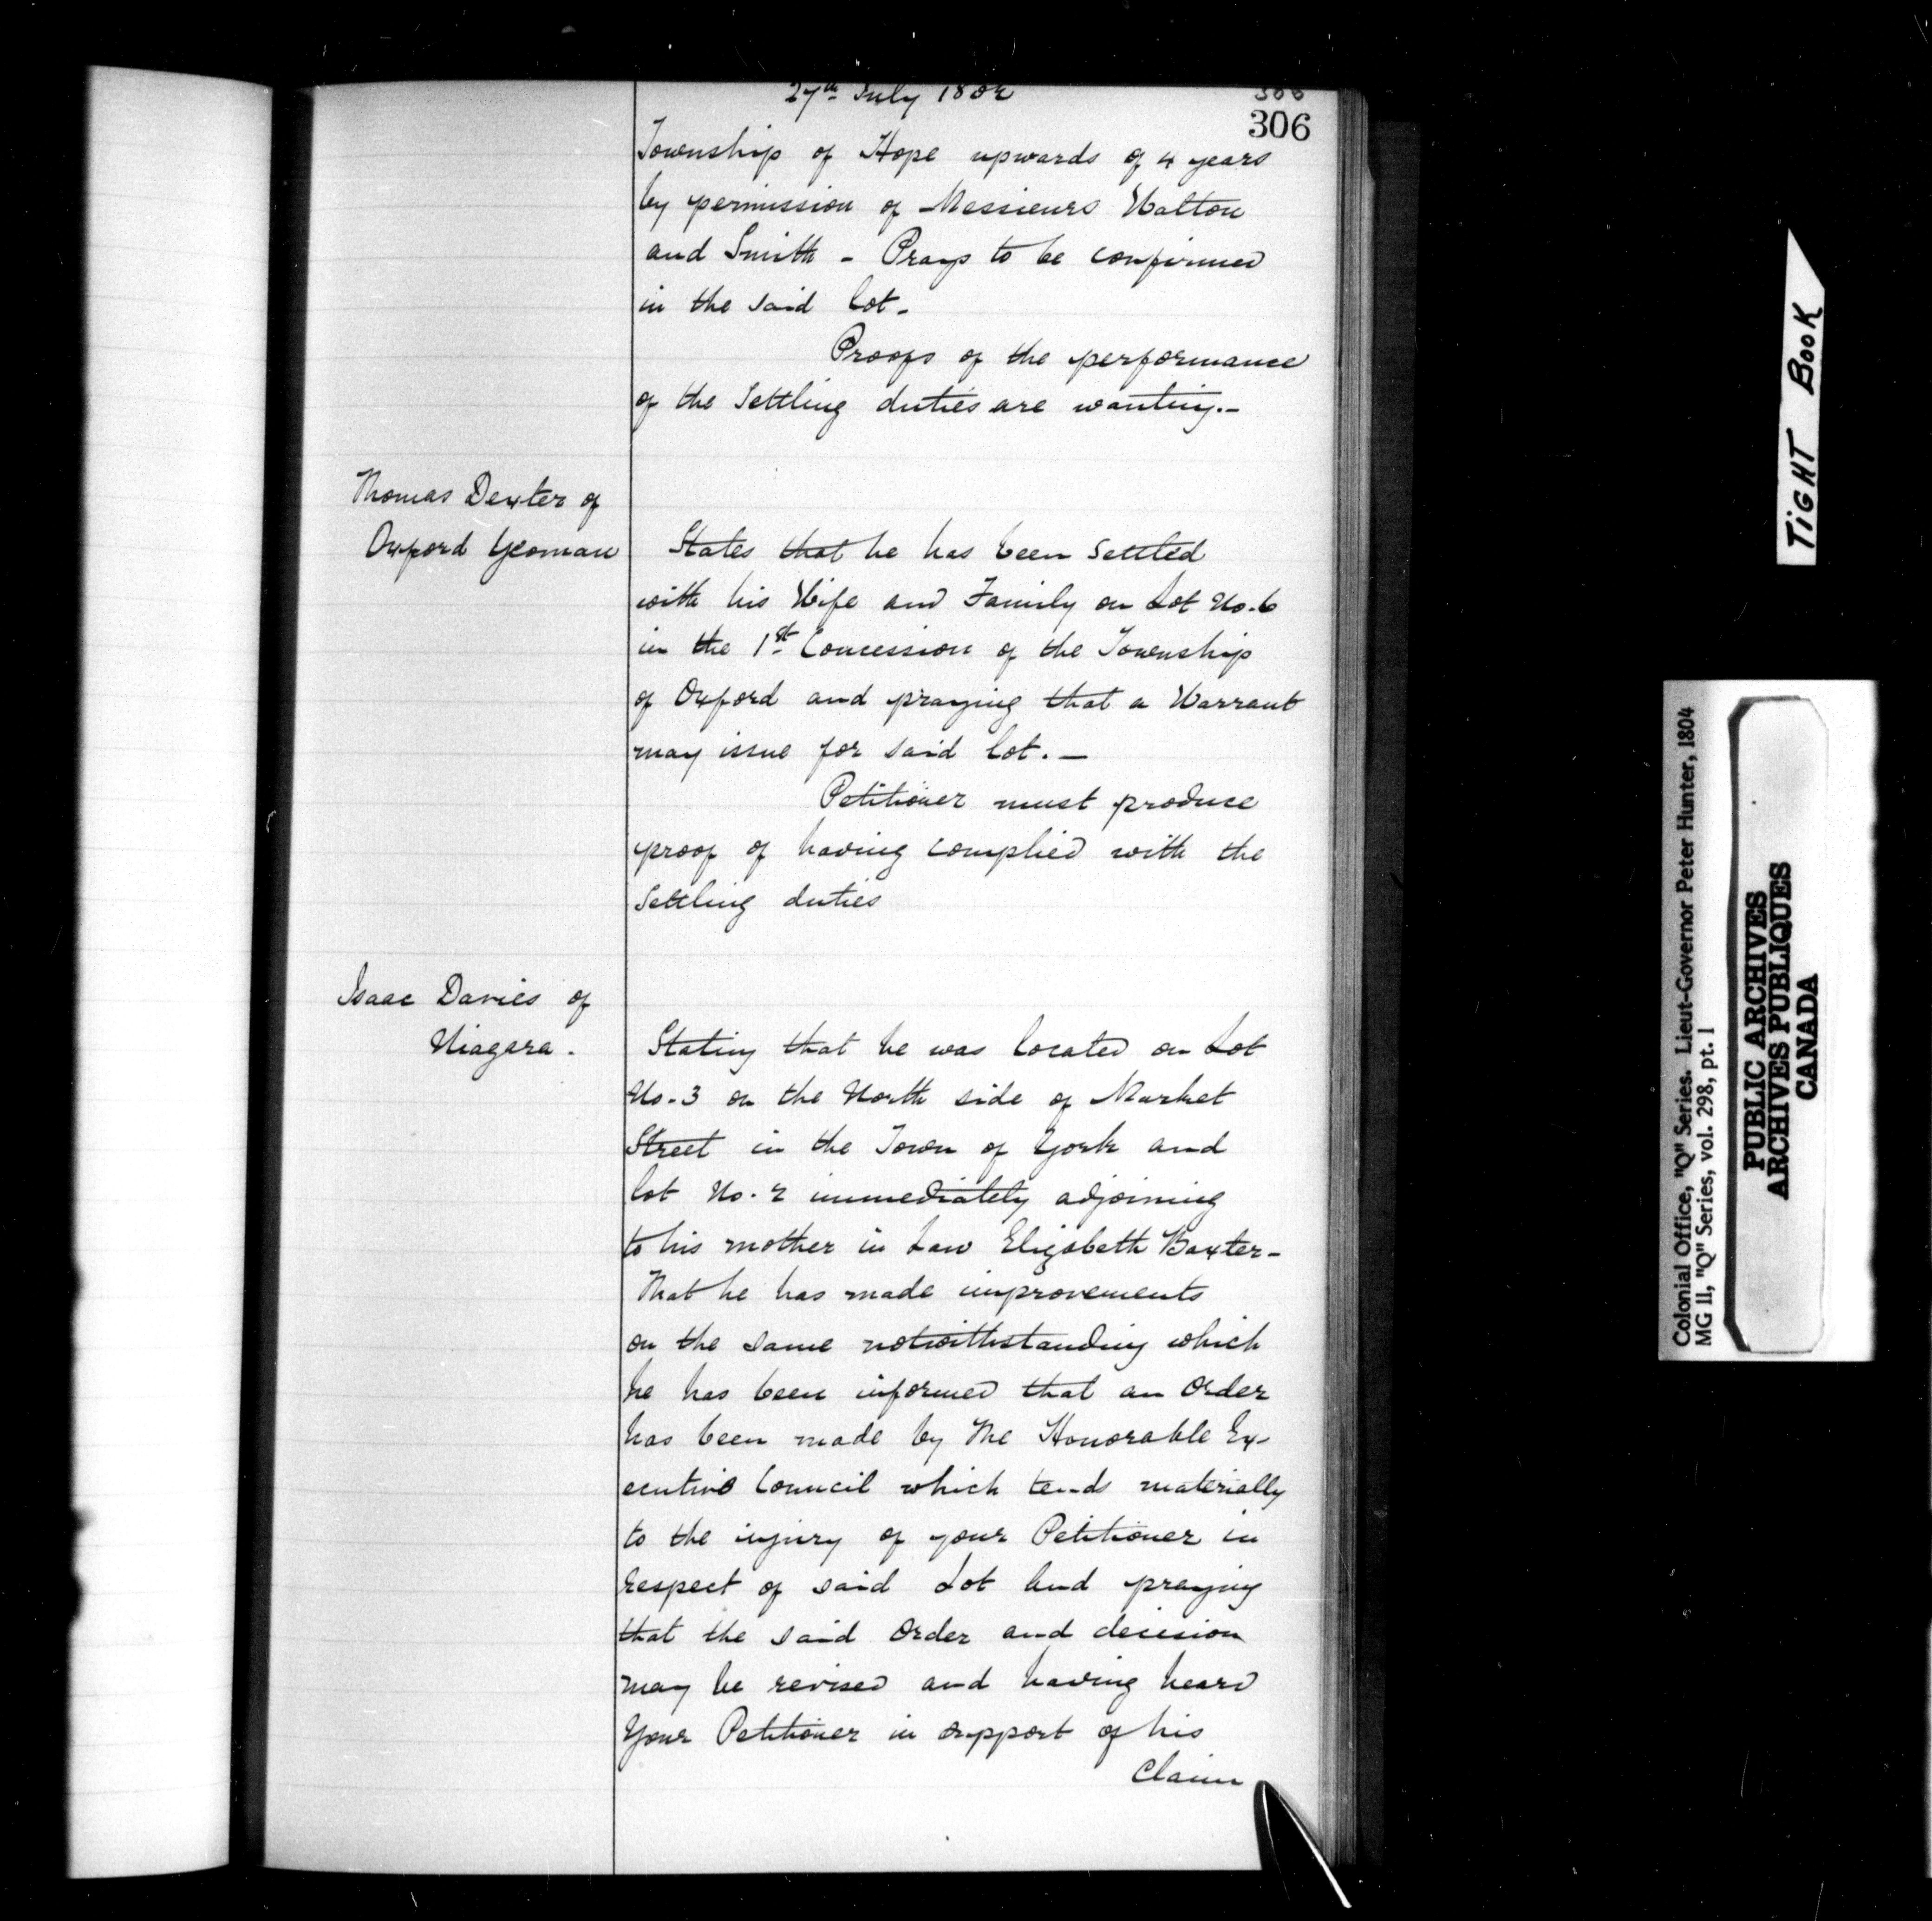 27th July 1802
306
306
Township of Hope upwards of 4 years
by permission of Messieurs Walton
and Smith - Prays to be confirmed
in the said lot.
Proofs of the performance
of the Settling duties are wanting.-
Thomas Dexter of
Oxford Yeoman
States that he has been settled
with his Wife and Family on Lot No. 6
in the 1st Concession of the Township
of Oxford and praying that a Warrant
may issue for said lot. -
Petitioner must produce
proof of having complied with the
Settling duties
Isaac Davies of
Niagara.
Stating that he was located on Lot
No. 3 on the North side of Market
Street in the Town of York and
lot No. 2 immediately adjoining
to his mother in Law Elizabeth Baxter-
That he has made improvements
on the same notwithstanding which
he has been informed that an Order
has been made by The Honorable Ex-
ecutive Council which tends materially
to the injury of your Petitioner in
respect of said Lot and praying
that the said Order and decision
may be revised and having heard
Your Petitioner in support of his
Claim
TIGHT BOOK
Colonial Office, "Q" Series. Lieut-Governor Peter Hunter, 1804
MG 11, "Q" Series, vol. 298, pt. 1
PUBLIC ARCHIVES
ARCHIVES PUBLIQUES
CANADA